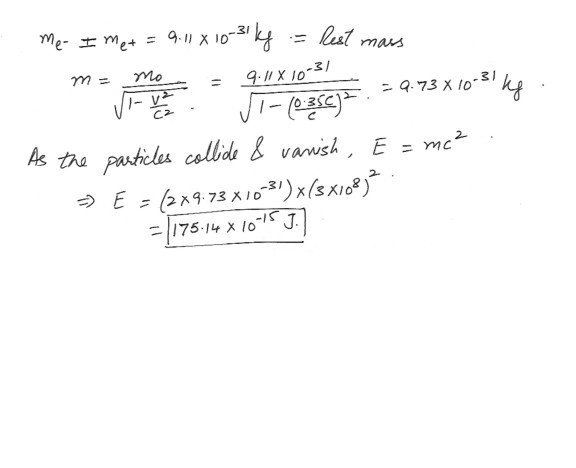 me- ± me+ = 9.11 x 10^-31 kg = Rest mass
m = mo / √(1 - v²/c²) = 9.11 x 10^-31 / √(1 - (0.35c/c)²) = 9.73 x 10^-31 kg.
As the particles collide & vanish, E = mc²
⇒ E = (2 x 9.73 x 10^-31) x (3 x 10^8)².
= 175.14 x 10^-15 J.